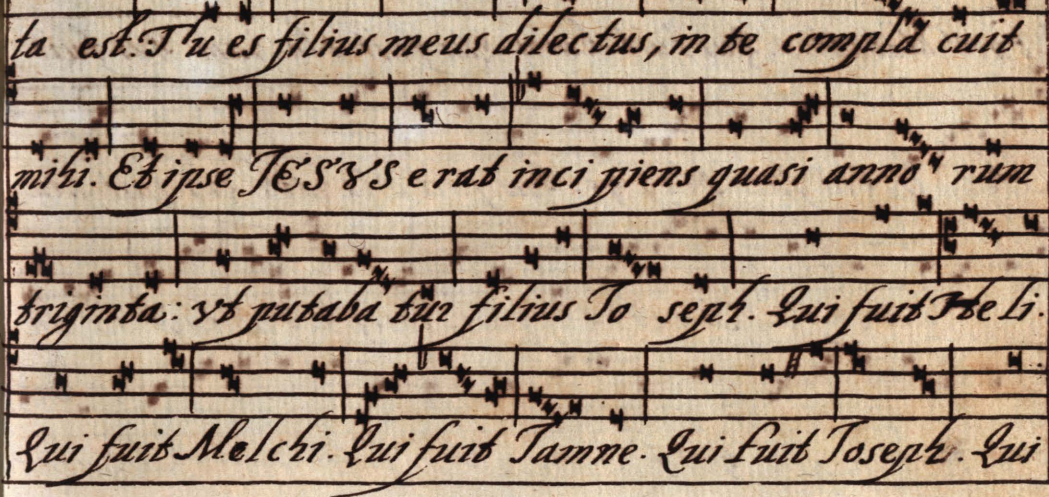 ta est. Tu es filius meus dilectus, in te complacuit
mihi. Et ipse JESVS erat incipiens quasi annorum
triginta: vt putabatur filius Joseph. Qui fuit Heli.
Qui fuit Melchi. Qui fuit Jamne. Qui fuit Joseph. Qui